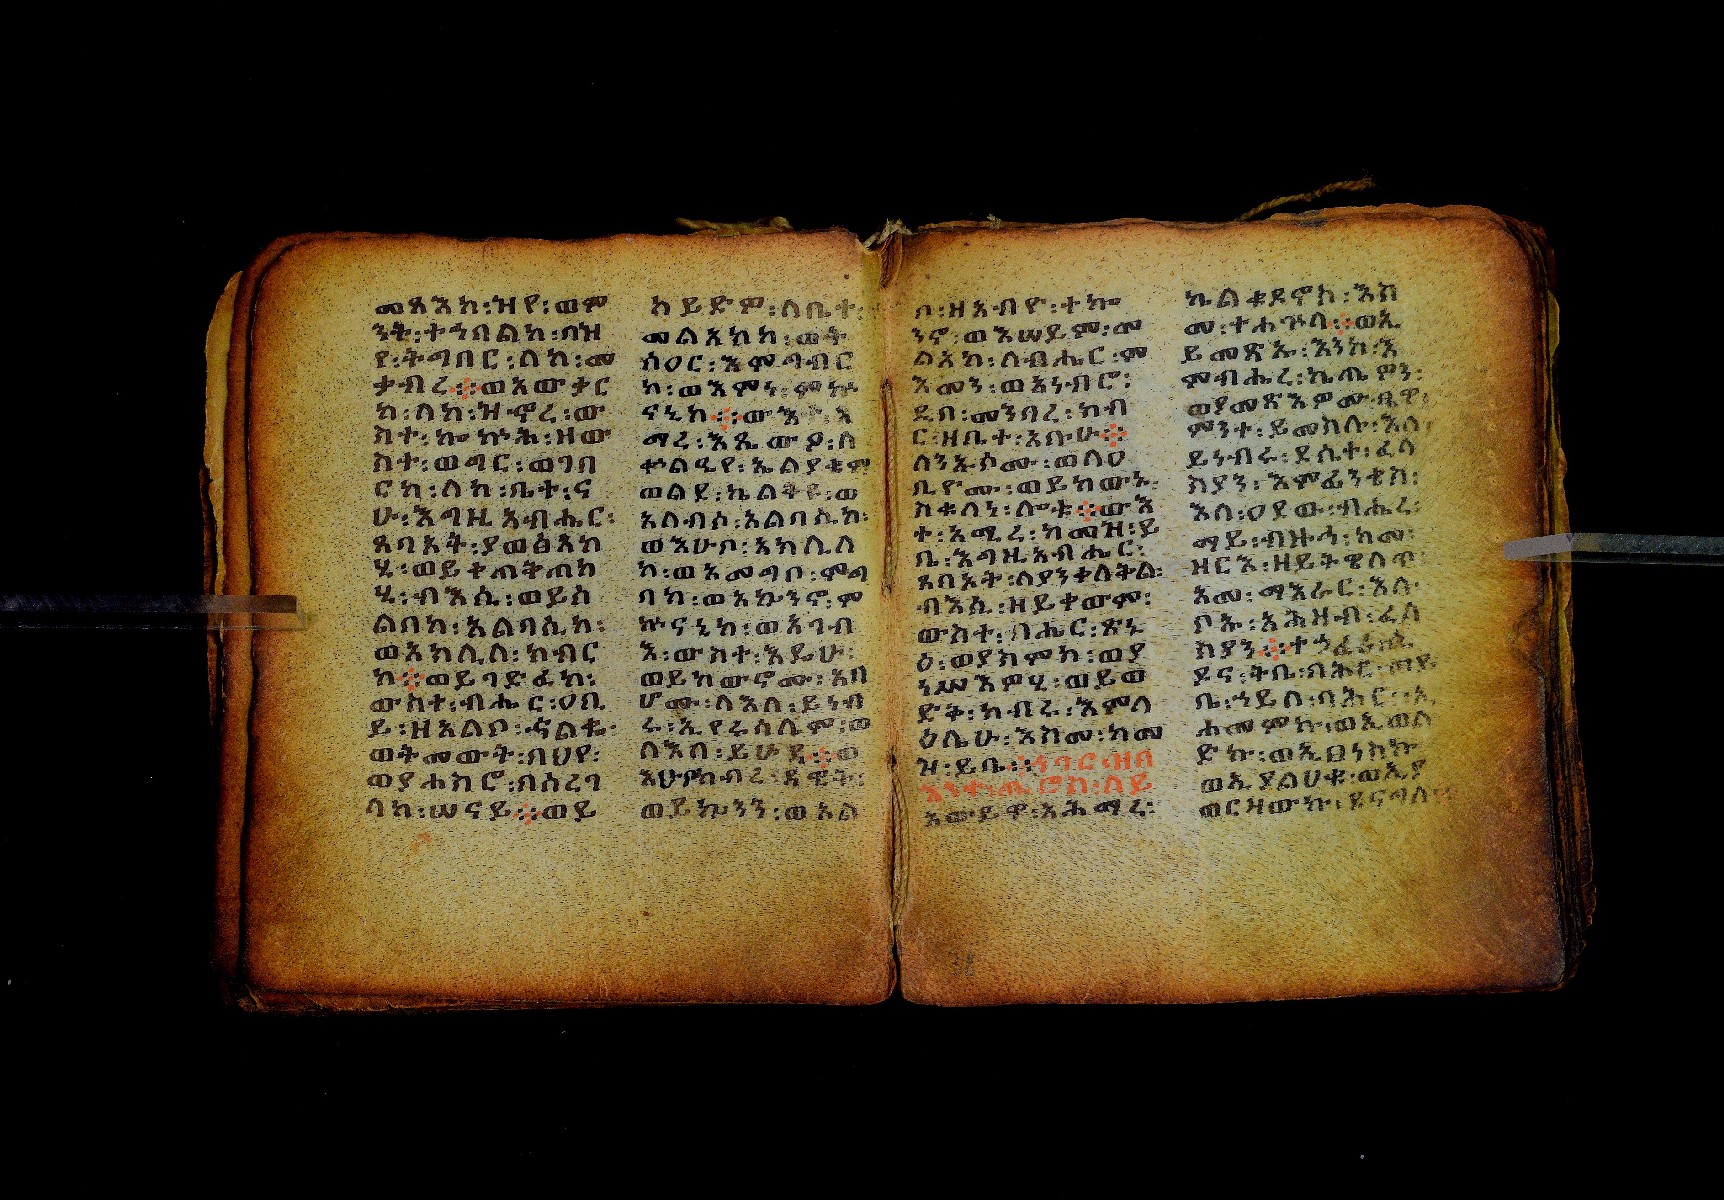 መጻእከ፡ዝየ፡ወም
ንት፡ተኀበልከ፡በዝ
የ፡ትግበር፡ለከ፡መ
ቃብረ፡፡ወአውቃር
ከ፡ለከ፡ዝኖረ፡ው
ስተ፡ኰኵሕ፡ዘው
ስተ፡ወግር፡ወገበ
ርከ፡ለከ፡ቤተ፡ና
ሁ፡እግዚአብሔር፡
ጸባኦት፡ያወፅአከ
ሂ፡ወይቀጠቅጠከ
ሂ፡ብእሲ፡ወይሰ
ልበከ፡አልባሲከ፡
ወአክሊለ፡ክብር
ከ፡፡ወይገድፈከ፡
ውስተ፡ብሔር፡ዐቢ
ይ፡ዘአልቦ፡ኁልቈ፡
ወትመውት፡በህየ፡
ወያሐስሮ፡በሰረገ
ላከ፡ሠናይ፡፡ወይ
ከይድም፡ለቤተ፡
መልአክከ፡ወት
ሰዐር፡እምግብር
ከ፡ወእምነ፡ምኵ
ናኒከ፡፡ውእተ፡አ
ሚረ፡እጼውዖ፡ለ
ቍልዔየ፡ኤልያቄም
ወልደ፡ኬልቅዩ፡ወ
አለብሶ፡አልባሲከ፡
ወእሁቦ፡አክሊለ
ከ፡ወእመግቦ፡ምግ
ባከ፡ወእኴንኖ፡ም
ኵናኒከ፡ወእገብ
እ፡ውስተ፡እዴሁ፡
ወይከውኖሙ፡አበ
ሆሙ፡ለእለ፡ይነብ
ሩ፡ኢየሩሳሌም፡ወ
ለእለ፡ይሁዳ፡፡ወ
እሁቦክብረ፡ዳዊት፡
ወይኴንን፡ወአል
ቦ፡ዘአብዮ፡ተኰ
ንኖ፡ወእሠይም፡መ
ልአከ፡ለብሔር፡ም
እመን፡ወእነብሮ፡
ዲበ፡መንበረ፡ክብ
ር፡ዘቤተ፡አቡሁ፡፡
ለንኡሶሙ፡ወለዐ
ቢዮሙ፡ወይከውኑ፡
ስቁላነ፡ሎቱ፡፡ውእ
ተ፡አሚረ፡ከመዝ፡ይ
ቤ፡እግዚአብሔር፡
ጸባኦት፡ለያንቀልቅል፡
ብእሲ፡ዘይቀውም፡
ውስተ፡ብሔር፡ጽኑ
ዕ፡ወያክምክ፡ወያ
ነሥእዎሂ፡ወይወ
ድቅ፡ክብሩ፡እምላ
ዕሌሁ፡እስመ፡ከመ
ዝ፡ይቤ፡፡ነገር፡ዘበ
እንተ፡ጢሮስ፡ለይ
አውይዋ፡አሕማረ፡
ኬልቄዶኖስ፡እስ
መ፡ተሐጕላ፡፡ወኢ
ይመጽኡ፡እንከ፡እ
ምብሔረ፡ኬጤዎን፡
ወያመጽእዎሙ፡ጼዋ፡
ምንተ፡ይመስሉ፡እለ፡
ይነብሩ፡ደሴተ፡ፈላ
ስያን፡እምፊንቂስ፡
እለ፡ዐደው፡ብሔረ፡
ማይ፡ብዙኅ፡ከመ፡
ዘርእ፡ዘይትዌለጥ፡
አመ፡ማእራር፡እለ፡
ቦኡ፡አሕዛብ፡ፈላ
ስያን፡፡ተኃፈሪ፡ሲ
ዶና፡ትቤ፡ባሕር፡ወይ
ቤ፡ኀይለ፡ባሕር፡ኢ
ሐመምኩ፡ወኢወለ
ድኩ፡ወኢሐፀንኩ
ወኢያልሀቁ፡ወኢያ
ወርዛውኩ፡ደናግለ፡፡